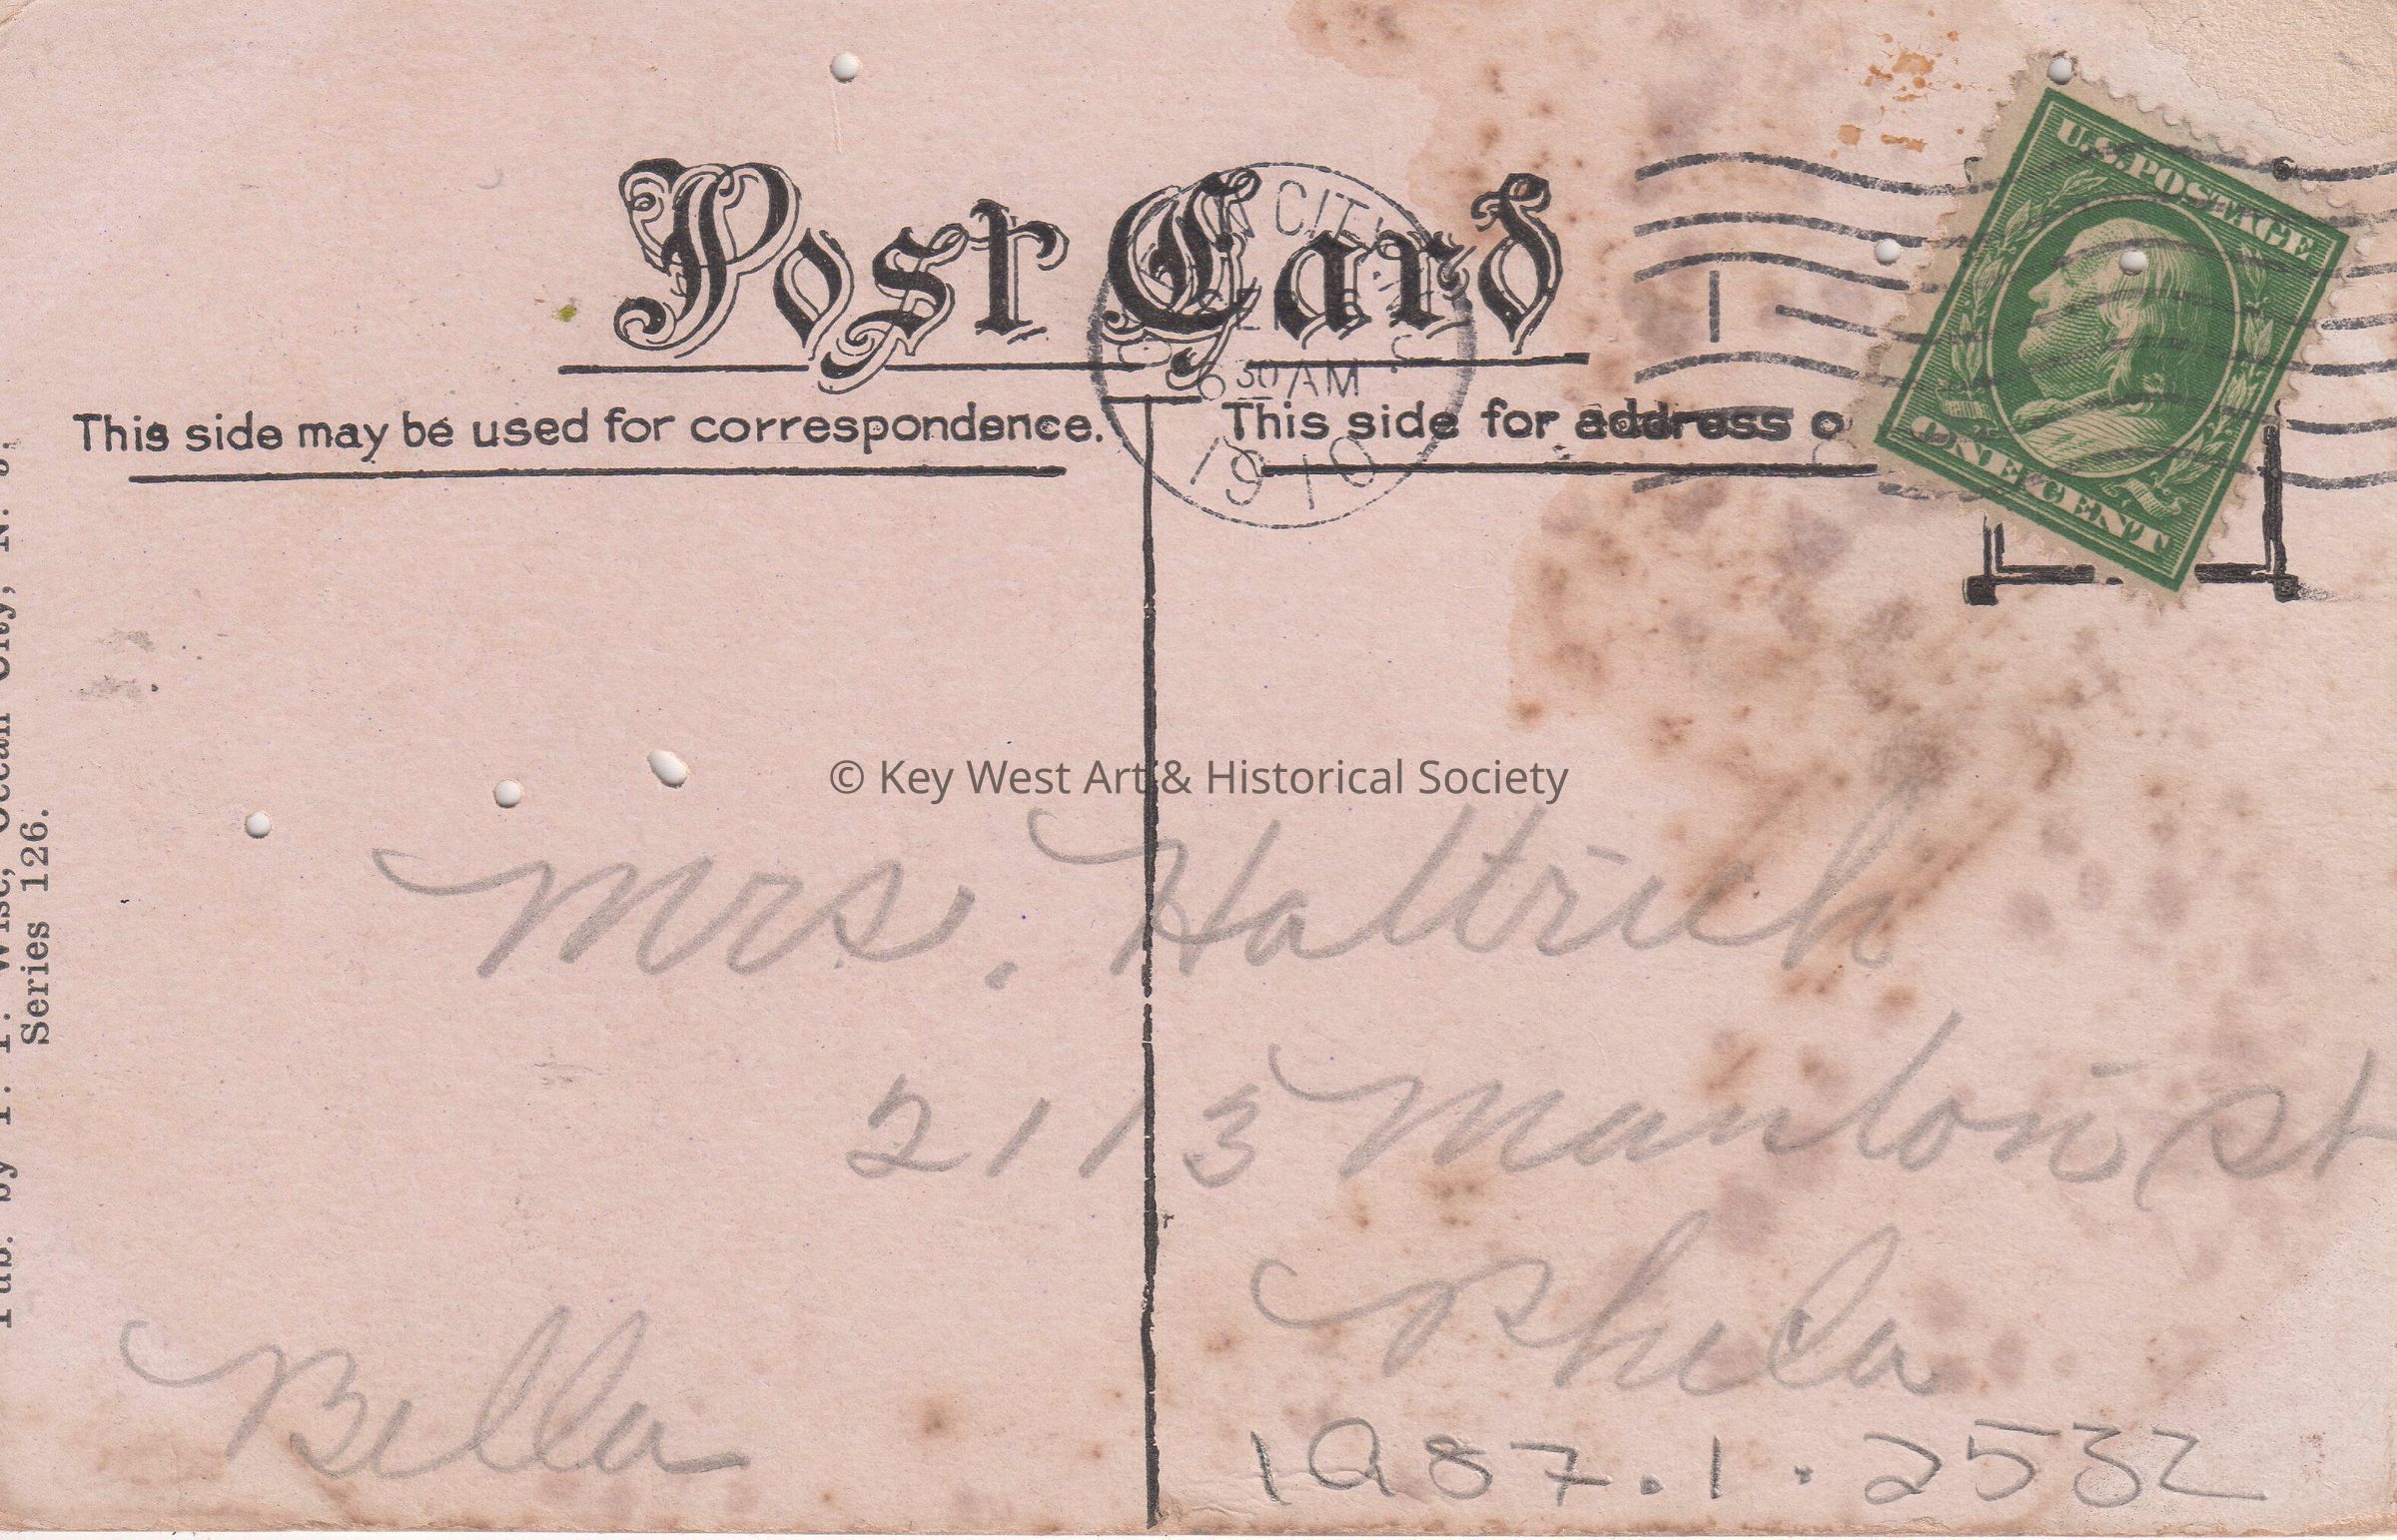 Post Card
This side may be used for correspondence.
This side for address o
CITY
6 30 AM
1910
U.S. POSTAGE
ONE CENT
Series 126.
© Key West Art & Historical Society
Mrs. Haltrich
2113 Manton St
Phila
Bella
1987.1.2532